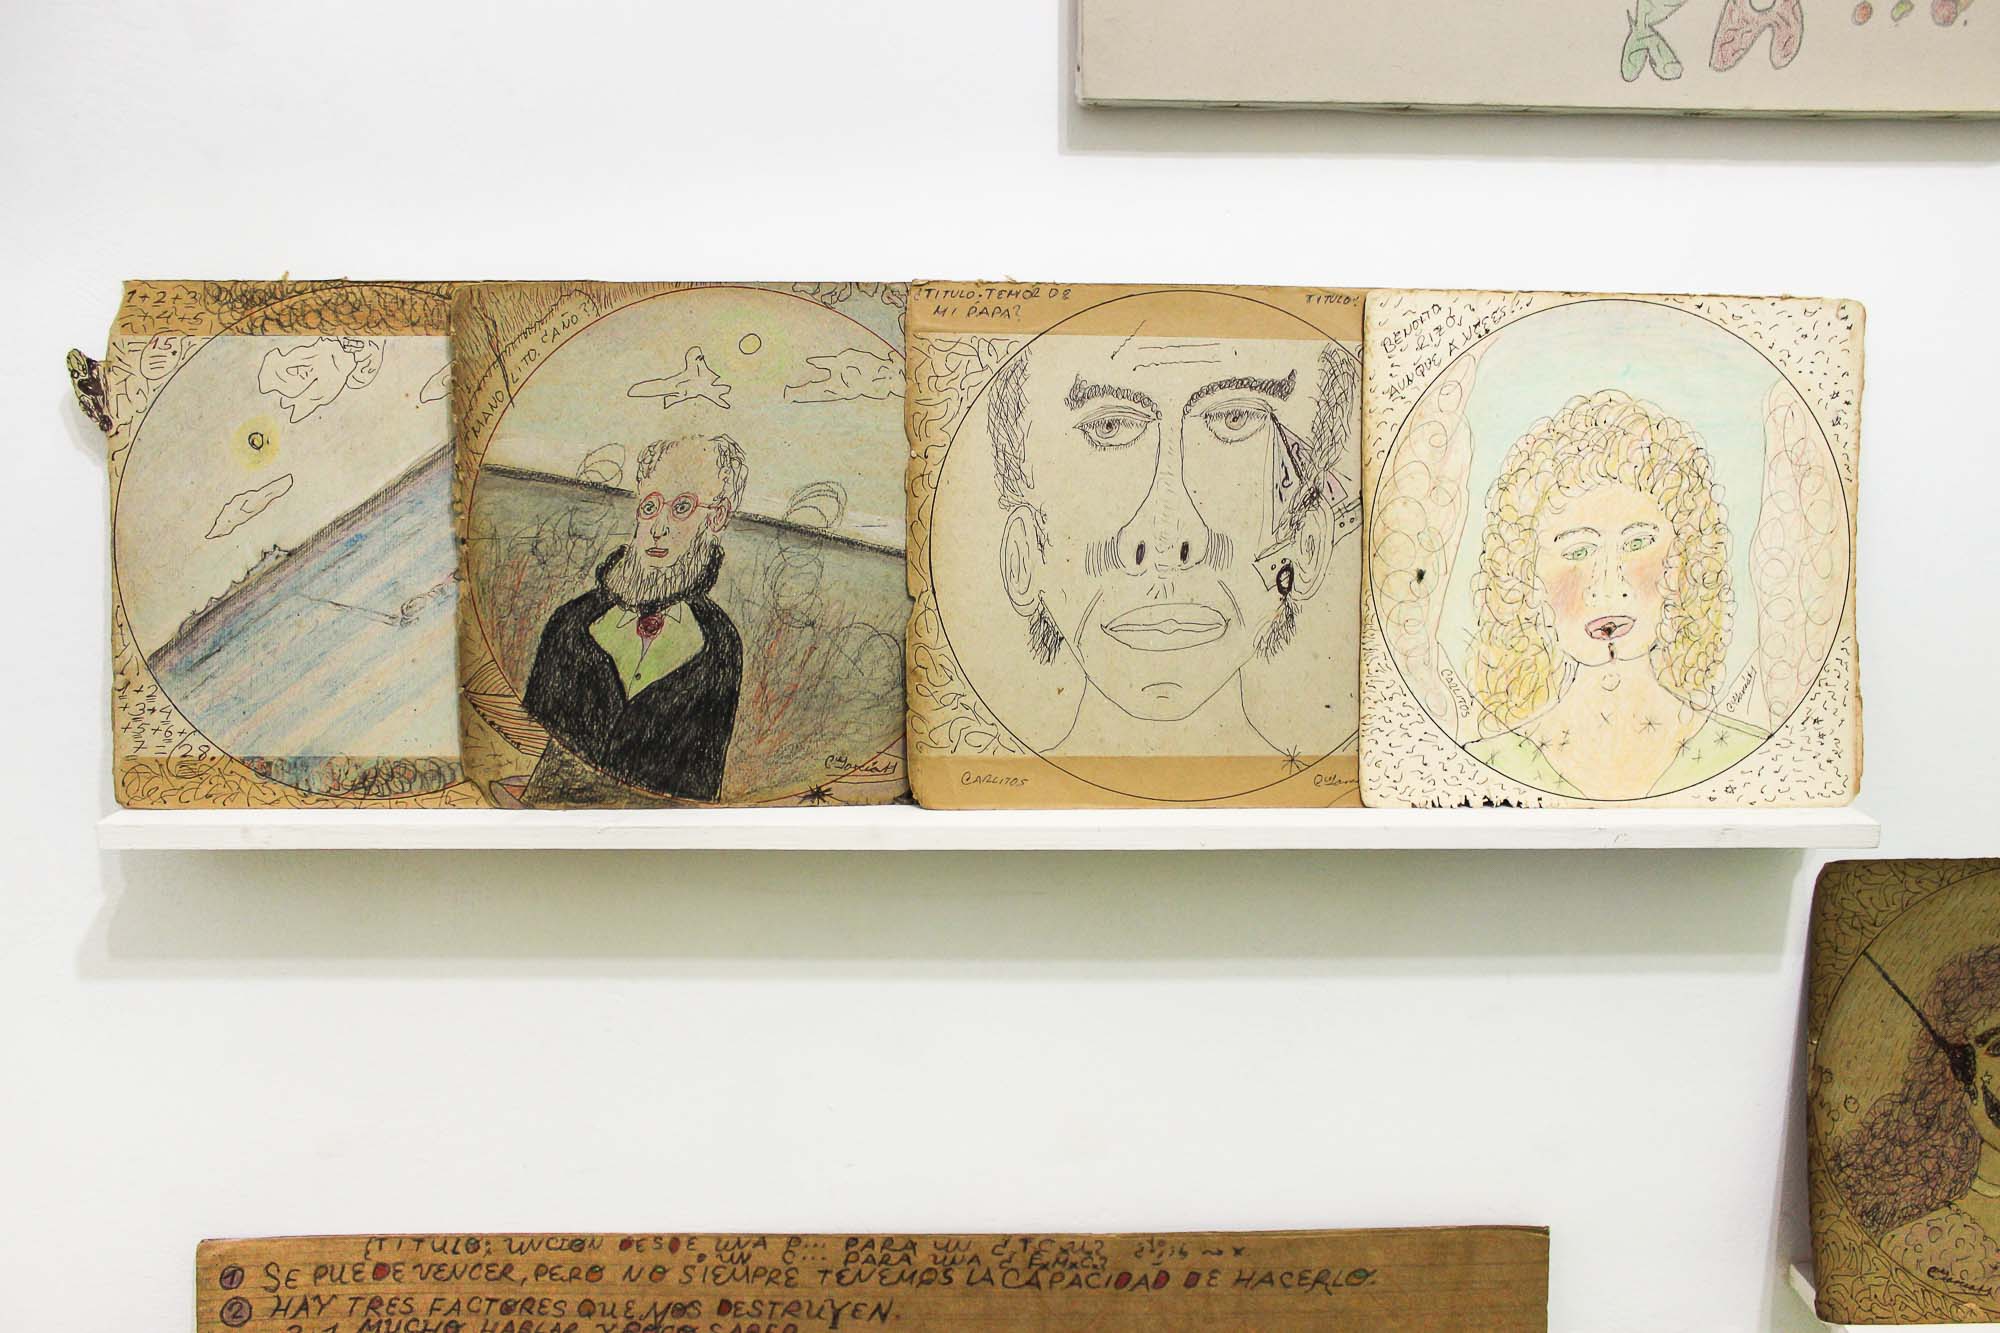 1+2+3
+4+5
15.
1 + 2
+ 3 + 4
+ 5 + 6 +
7
28.
MANOLITO CAÑO?
TITULO: TEMOR DE
MI PAPA?
TITULO:
CARLITOS
BENDITO
RIZO,
AUNQUE A VECES...
CARLITOS
¿TITULO; UNCION DESDE UNA P... PARA UN
UN C... PARA UNA
1 SE PUEDE VENCER, PERO NO SIEMPRE TENEMOS LA CAPACIDAD DE HACERLO.
2 HAY TRES FACTORES QUE NOS DESTRUYEN.
2.1 MUCHO HABLAR Y POCO SABER